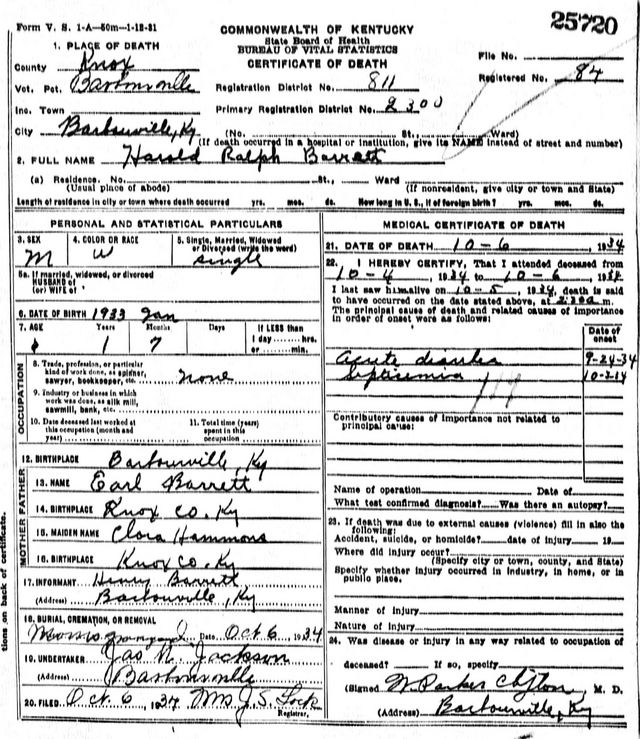 Form V. S. 1-A—50m—1-18-31
25720
COMMONWEALTH OF KENTUCKY
State Board of Health
BUREAU OF VITAL STATISTICS
CERTIFICATE OF DEATH
1. PLACE OF DEATH
County Knox
Vot. Pct. Barbourville
Inc. Town
City Barbourville, Ky
Registration District No. 811
Primary Registration District No. 2300
File No.
Registered No. 84
(No. St., Ward)
(If death occurred in a hospital or institution, give its NAME instead of street and number)
2. FULL NAME Harold Ralph Barrett
(a) Residence. No. St., Ward
(Usual place of abode) (If nonresident, give city or town and State)
Length of residence in city or town where death occurred yrs. mos. ds. How long in U. S., if of foreign birth? yrs. mos. ds.
PERSONAL AND STATISTICAL PARTICULARS
3. SEX M
4. COLOR OR RACE W
5. Single, Married, Widowed
or Divorced (write the word)
single
5a. If married, widowed, or divorced
HUSBAND of
(or) WIFE of
6. DATE OF BIRTH 1933 Jan
7. AGE Years Months Days If LESS than
1 day hrs.
or min.
1 7
OCCUPATION
8. Trade, profession, or particular
kind of work done, as spinner,
sawyer, bookkeeper, etc. none
9. Industry or business in which
work was done, as silk mill,
sawmill, bank, etc.
10. Date deceased last worked at
this occupation (month and
year)
11. Total time (years)
spent in this
occupation
12. BIRTHPLACE Barbourville, Ky
FATHER
13. NAME Earl Barrett
14. BIRTHPLACE Knox Co. Ky
MOTHER
15. MAIDEN NAME Clora Hammons
16. BIRTHPLACE Knox Co. Ky
17. INFORMANT Henry Barrett
(Address) Barbourville, Ky
18. BURIAL, CREMATION, OR REMOVAL
Date Oct 6 1934
19. UNDERTAKER Jas N. Jackson
(Address) Barbourville
20. FILED Oct 6, 1934 Mrs J. S. Lock
Registrar.
MEDICAL CERTIFICATE OF DEATH
21. DATE OF DEATH 10-6, 1934
22. I HEREBY CERTIFY, That I attended deceased from
10-4, 1934 to 10-6, 1934
I last saw him alive on 10-5, 1934, death is said
to have occurred on the date stated above, at 2:30a m.
The principal cause of death and related causes of importance
in order of onset were as follows:
Date of
onset
Acute diarrhea 9-24-34
Septicemia 10-2-34
119
Contributory causes of importance not related to
principal cause:
Name of operation Date of
What test confirmed diagnosis? Was there an autopsy?
23. If death was due to external causes (violence) fill in also the
following:
Accident, suicide, or homicide? date of injury 19
Where did injury occur?
(Specify city or town, county, and State)
Specify whether injury occurred in industry, in home, or in
public place.
Manner of injury
Nature of injury
24. Was disease or injury in any way related to occupation of
deceased? If so, specify
(Signed W. Parker Clifton, M. D.
(Address) Barbourville, Ky
tions on back of certificate.